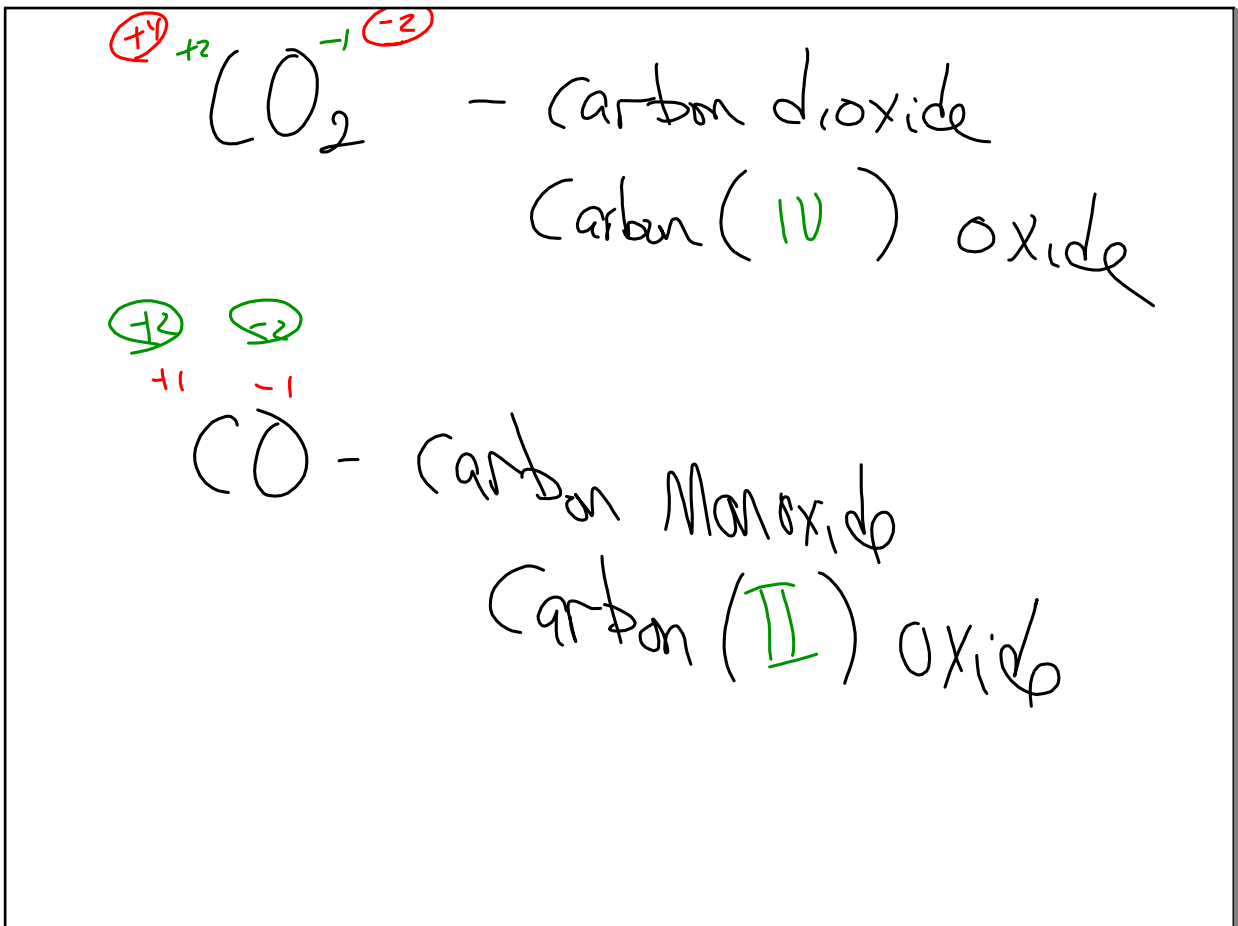 +4 +2 -1 -2
CO2 - Carbon dioxide
Carbon (IV) oxide
+2 -2
+1 -1
CO - Carbon Monoxide
Carbon (II) oxide